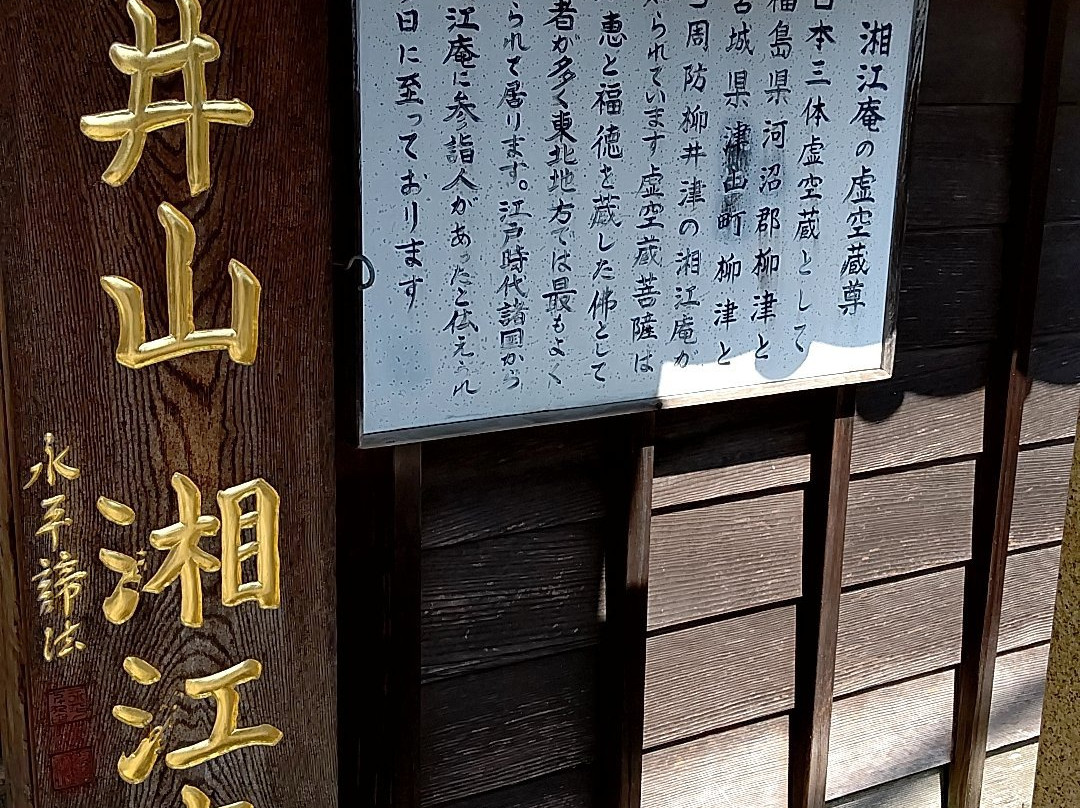 湘江庵の虚空蔵尊
日本三体虚空蔵として
福島県河沼郡柳津と
宮城県津山町柳津と
周防柳井津の湘江庵が
られています虚空蔵菩薩は
恵と福徳を蔵した佛として
者が多く東北地方では最もよく
られて居ります。江戸時代諸国から
江庵に参詣人があったと伝えられ
日に至っております
井山湘江
永平諦法